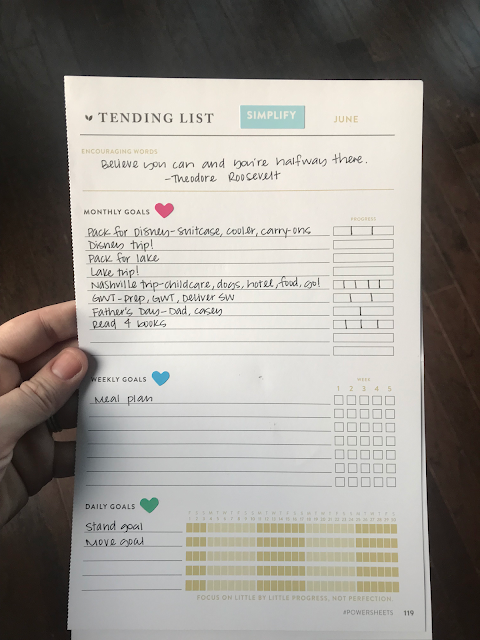 TENDING LIST
SIMPLIFY
JUNE
ENCOURAGING WORDS
Believe you can and you're halfway there.
-Theodore Roosevelt
MONTHLY GOALS
PROGRESS
Pack for Disney-suitcase, cooler, carry-ons
Disney trip!
Pack for lake
Lake trip!
Nashville trip-childcare, dogs, hotel, food, go!
GWT-prep, GWT, Deliver SW
Father's Day-Dad, Casey
Read 4 books
WEEKLY GOALS
WEEK
1 2 3 4 5
Meal plan
DAILY GOALS
Stand goal
Move goal
FOCUS ON LITTLE BY LITTLE PROGRESS, NOT PERFECTION.
#POWERSHEETS 119